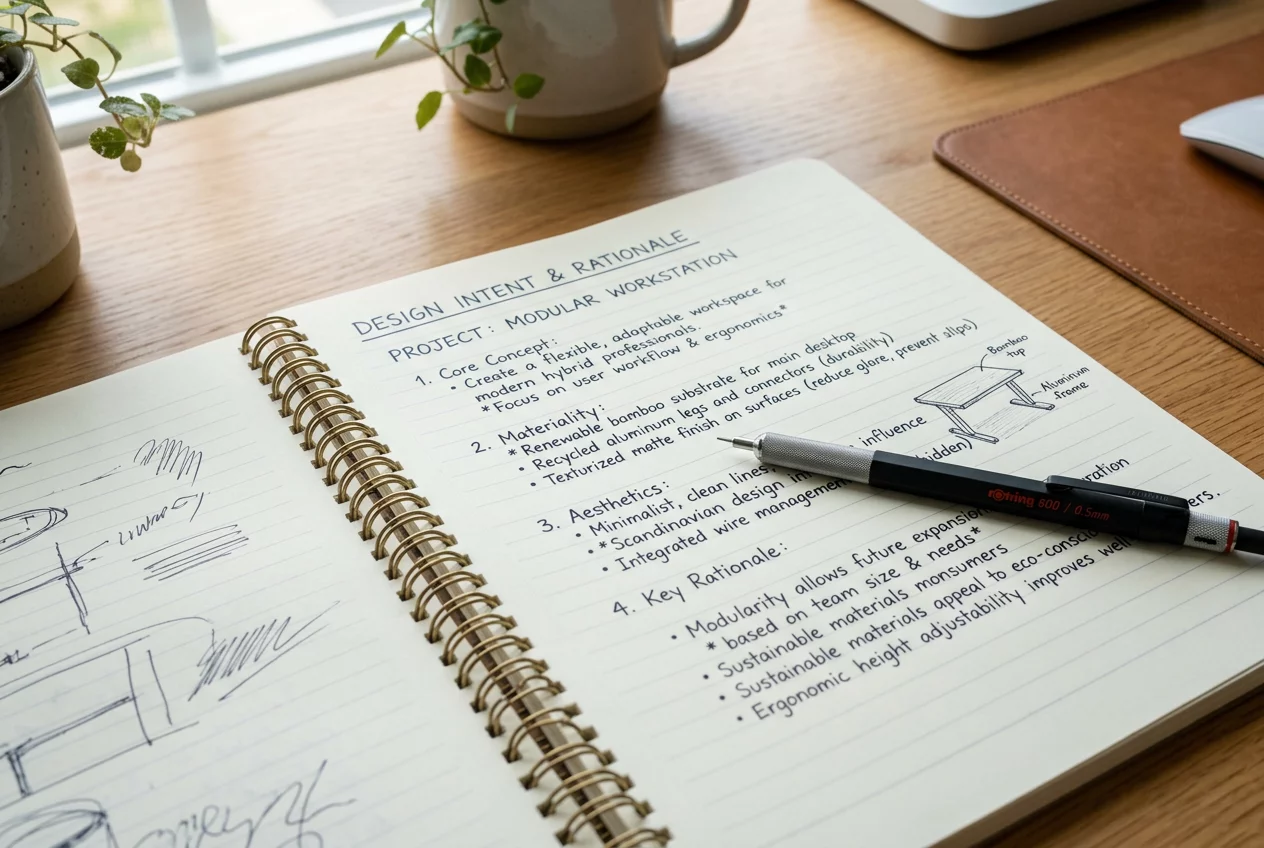 DESIGN INTENT & RATIONALE
PROJECT: MODULAR WORKSTATION
1. Core Concept:
• Create a flexible, adaptable workspace for
modern hybrid professionals.
*Focus on user workflow & ergonomics*
2. Materiality:
* Renewable bamboo substrate for main desktop
• Recycled aluminum legs and connectors (durability)
• Texturized matte finish on surfaces (reduce glare, prevent slips)
Bamboo
top
Aluminum
frame
3. Aesthetics:
• Minimalist, clean lines, influence
• *Scandinavian design
• Integrated wire management hidden)
4. Key Rationale:
• Modularity allows future expansion
* based on team size & needs*
• Sustainable materials monsumers
• Sustainable materials appeal to
• Ergonomic height adjustability improves
rotring 600 / 0.5mm